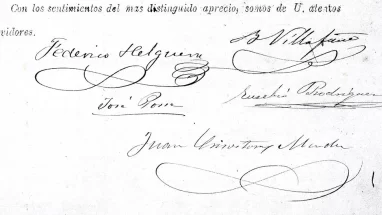 Con los sentimientos del mas distinguido aprecio, somos de U. atentos
vidores.
Federico Helguera B Villafañe
José Posse Eusebio Rodriguez
Juan Crisostomo Mendez